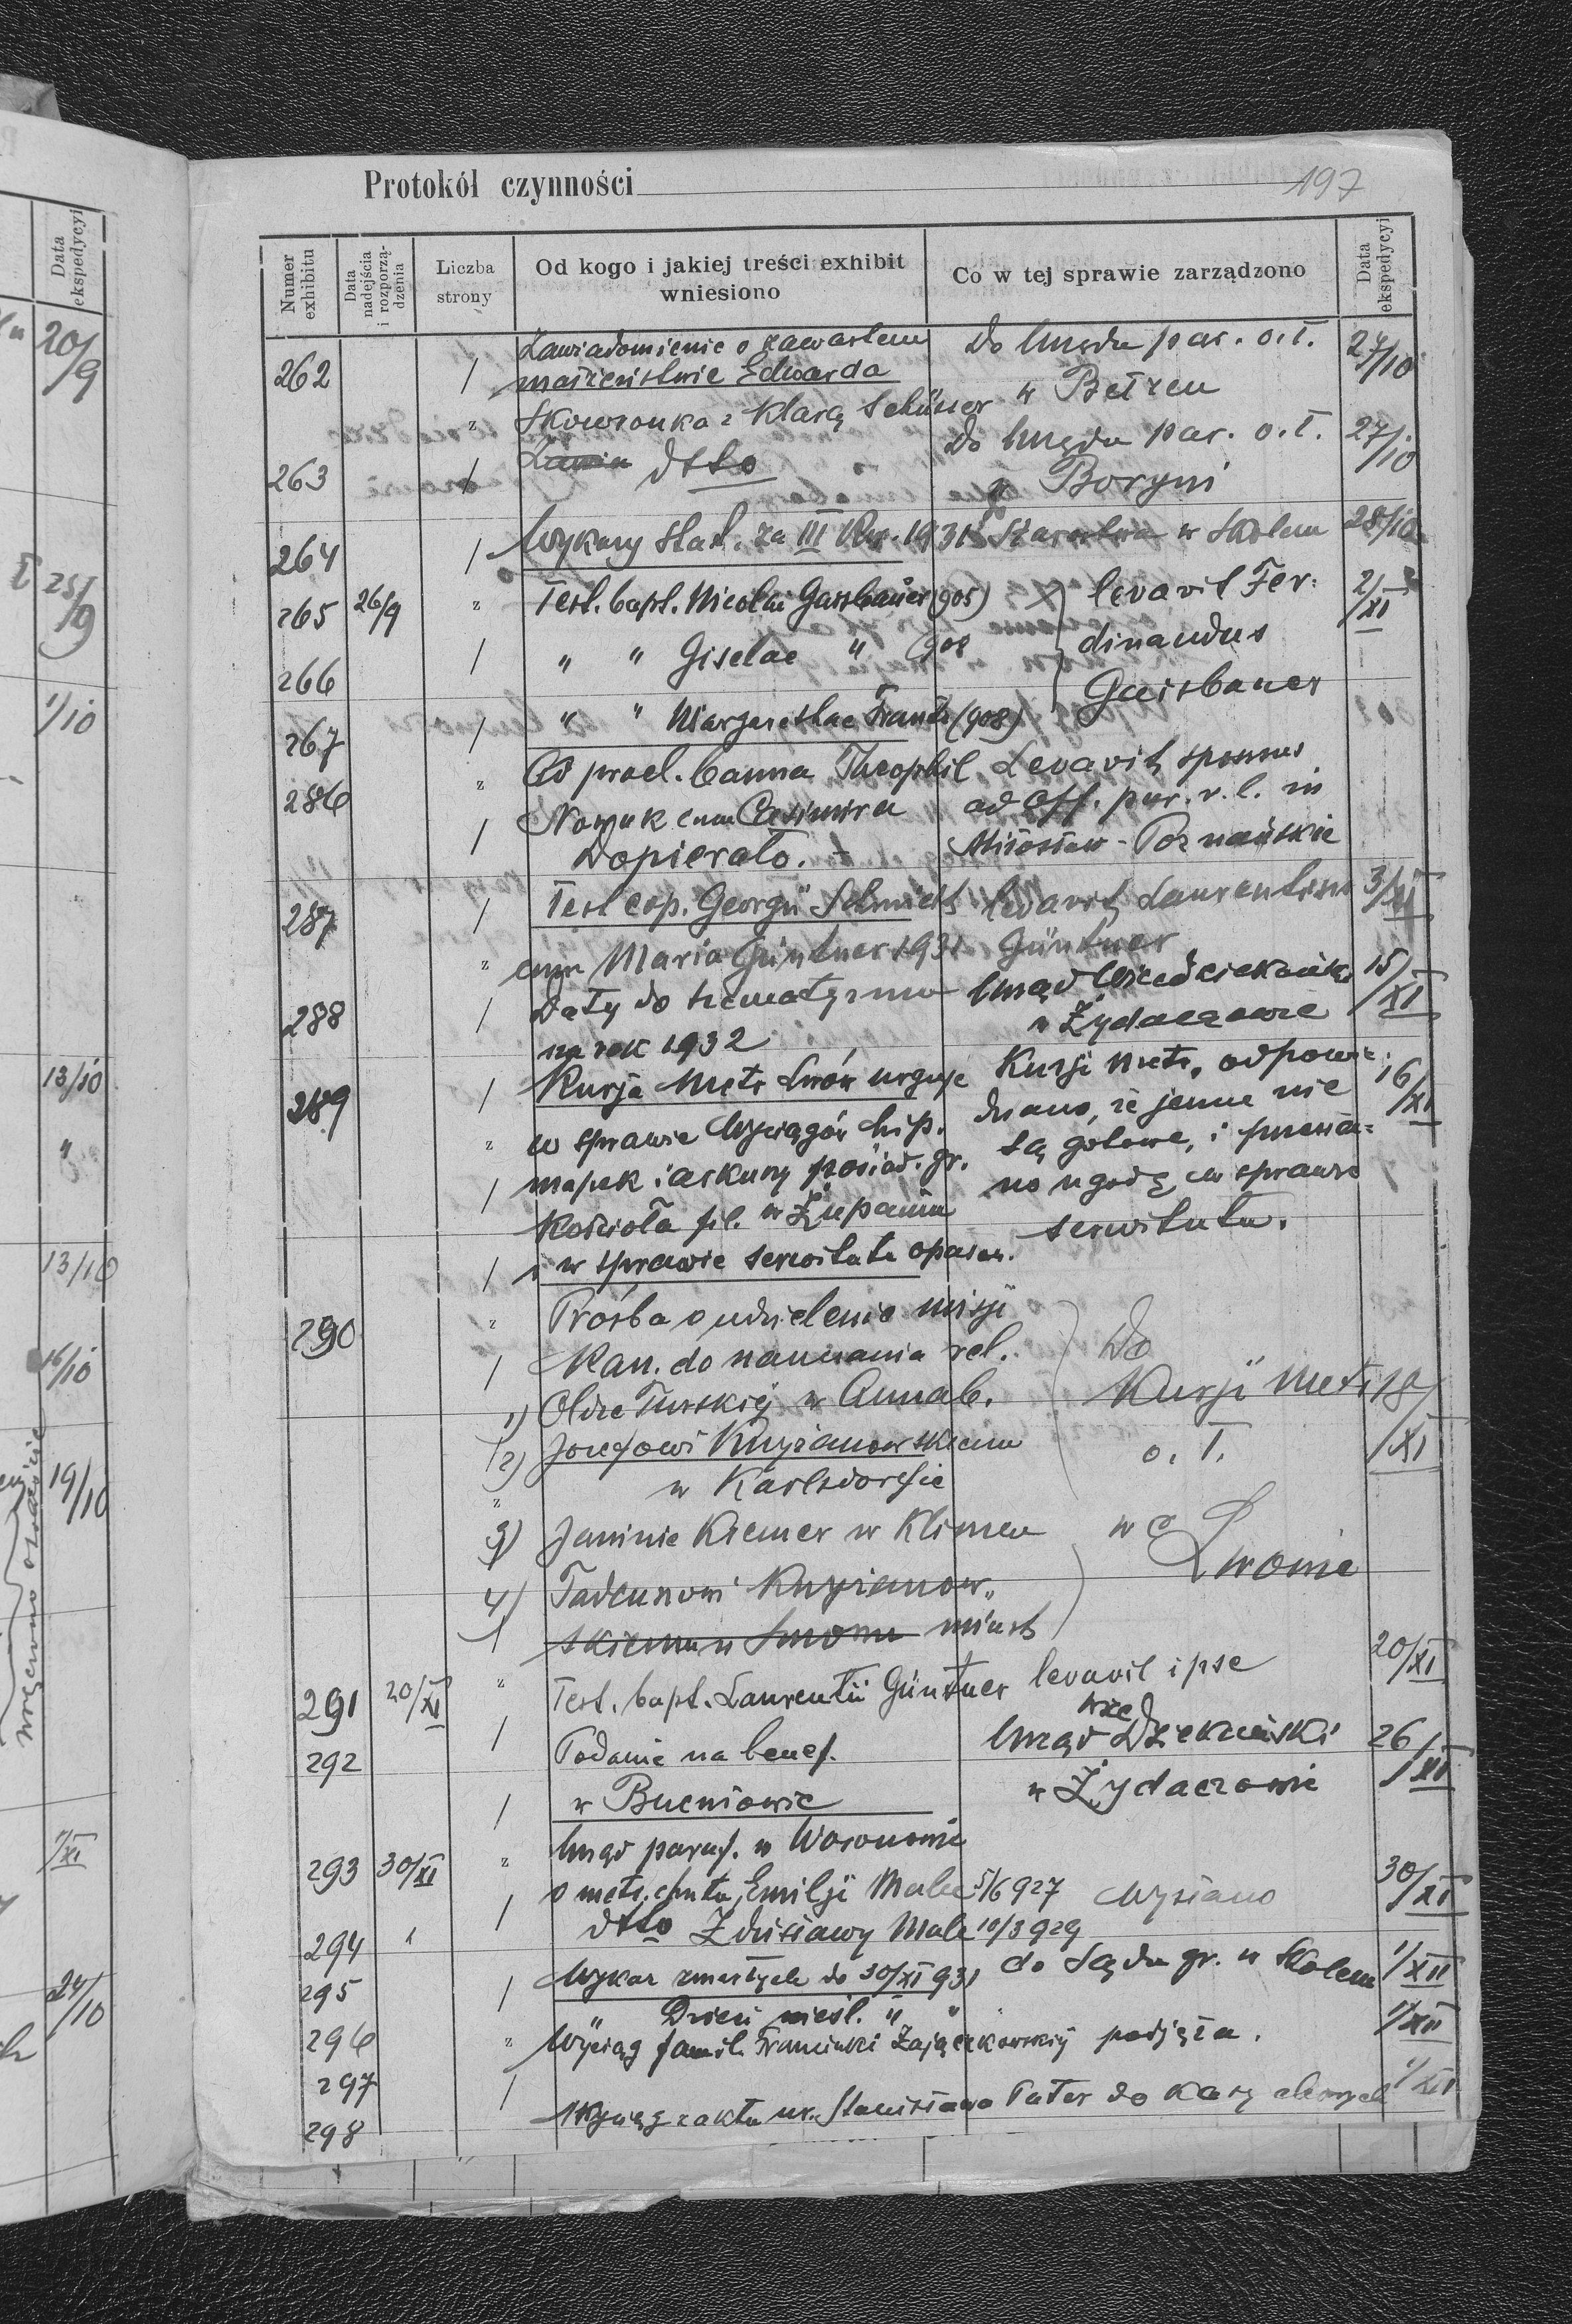 Protokół czynności
197
Numer exhibitu
Data nadejścia i rozporządzenia
Liczba strony
Od kogo i jakiej treści exhibit wniesiono
Co w tej sprawie zarządzono
Data ekspedycyj
262 / Zawiadomienie o zawartem Do Urzędu par. o.ł. 27/10
małżeństwie Edwarda w Bełzcu
" Skowronka z Klarą
263 / dtto Do Urzędu par. o.ł. 27/10
w Boryni
264 / Wykazy stat. za III Kw. 1931 Do Starostwa w Skolem 28/10
265 26/9 " Test. bapt. Nicolai Gaisbauer (905) levavit Fer- 2/XI
266 / " " Giselae " (908 dinandus
267 / " " Margarethae (908) Gaisbauer
286 " Co prael. banna Theophil Levavit sponsus
Nowak cum Casimira ad Off. par. r. l. in
/ Dopierało. - Miłosław - Poznańskie
287 / Test cop. Georgii Schmidt levavit Laurentius 3/XI
" cum Maria Güntner 1931 Güntner
288 / Daty do szematyzmu Urząd Wicedziekański 15/XI
na rok 1932 w Żydaczowie
289 / Kurja Metr Lwów urguje Kurji Metr. odpowie- 16/XI
" w sprawie Wyciągów hip. dziano, że jeszcze nie
mapek i arkuszy posiad. gr. są gotowe, i
/ Kościoła fil. w Żupaniu no ugodę w sprawie
/ i w sprawie serwitutu opałow. serwitutu.
290 " Prośba o udzielenie misji
/ Kan. do nauczania rel. Do
1) Oldze Turskiej w Annab. Kurji Metr 18/XI
2) Józefowi Kuryjanowskiemu o. ł.
" w Karlsdorfie
3) Janinie Kremer w Klimcu we
4) Tadeuszowi Lwowie
/ skiemu w Smorzu miast
291 20/XI " Test. bapt. Laurentii Güntner levavit ipse 20/XI
292 / Podanie na benef. Urząd Wice Dziekański 26/XI
/ w Bucniowie w Żydaczowie
293 30/XI " Urząd paraf. w Woronowie
/ o metr. chrztu Emilji Malec 5/6 927 Wysłano 30/XI
294 " dtto Zdzisławy Malec 10/3 929
295 / Wykaz zmarłych do 30/XI 931 do Sądu gr. w Skolem 1/XII
296 " " Dzieci nieśl. " " 1/XII
297 / Wyciąg famil. Franciszki Zajączkowskiej podjęła. 1/XII
298 Wyciąg z aktu ur. Stanisława Pater do Kasy chorych
20/9
25/9
1/10
13/10
"
13/10
16/10
19/10
7/XI
24/10